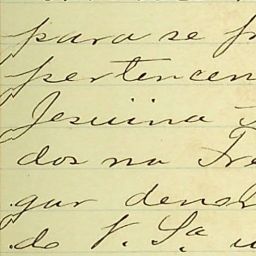 para se
pertencen
Jesuina
dos na Fre
gar deno
do V. Sª